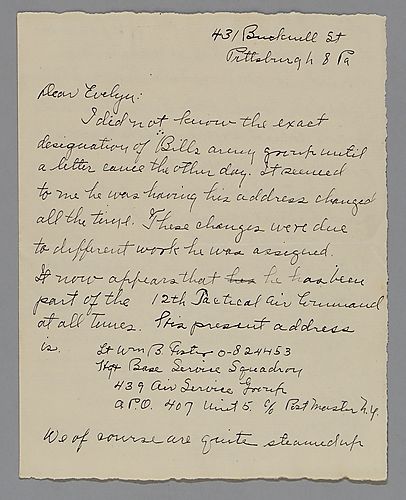 431 Bucknell St
Pittsburgh 8 Pa
Dear Evelyn:
I did not know the exact
designation of "Bills army group until
a letter came the other day. It seemed
to me he was having his address changed
all the time. These changes were due
to different work he was assigned.
It now appears that has he has been
part of the 12th Tactical Air Command
at all times. His present address
is. Lt Wm B. Foster O-824453
Hq+ Base Service Squadron
439 Air Service Group
A.P.O. 407 Unit 5 c/o Post Master N.Y.
We of course are quite steamed up